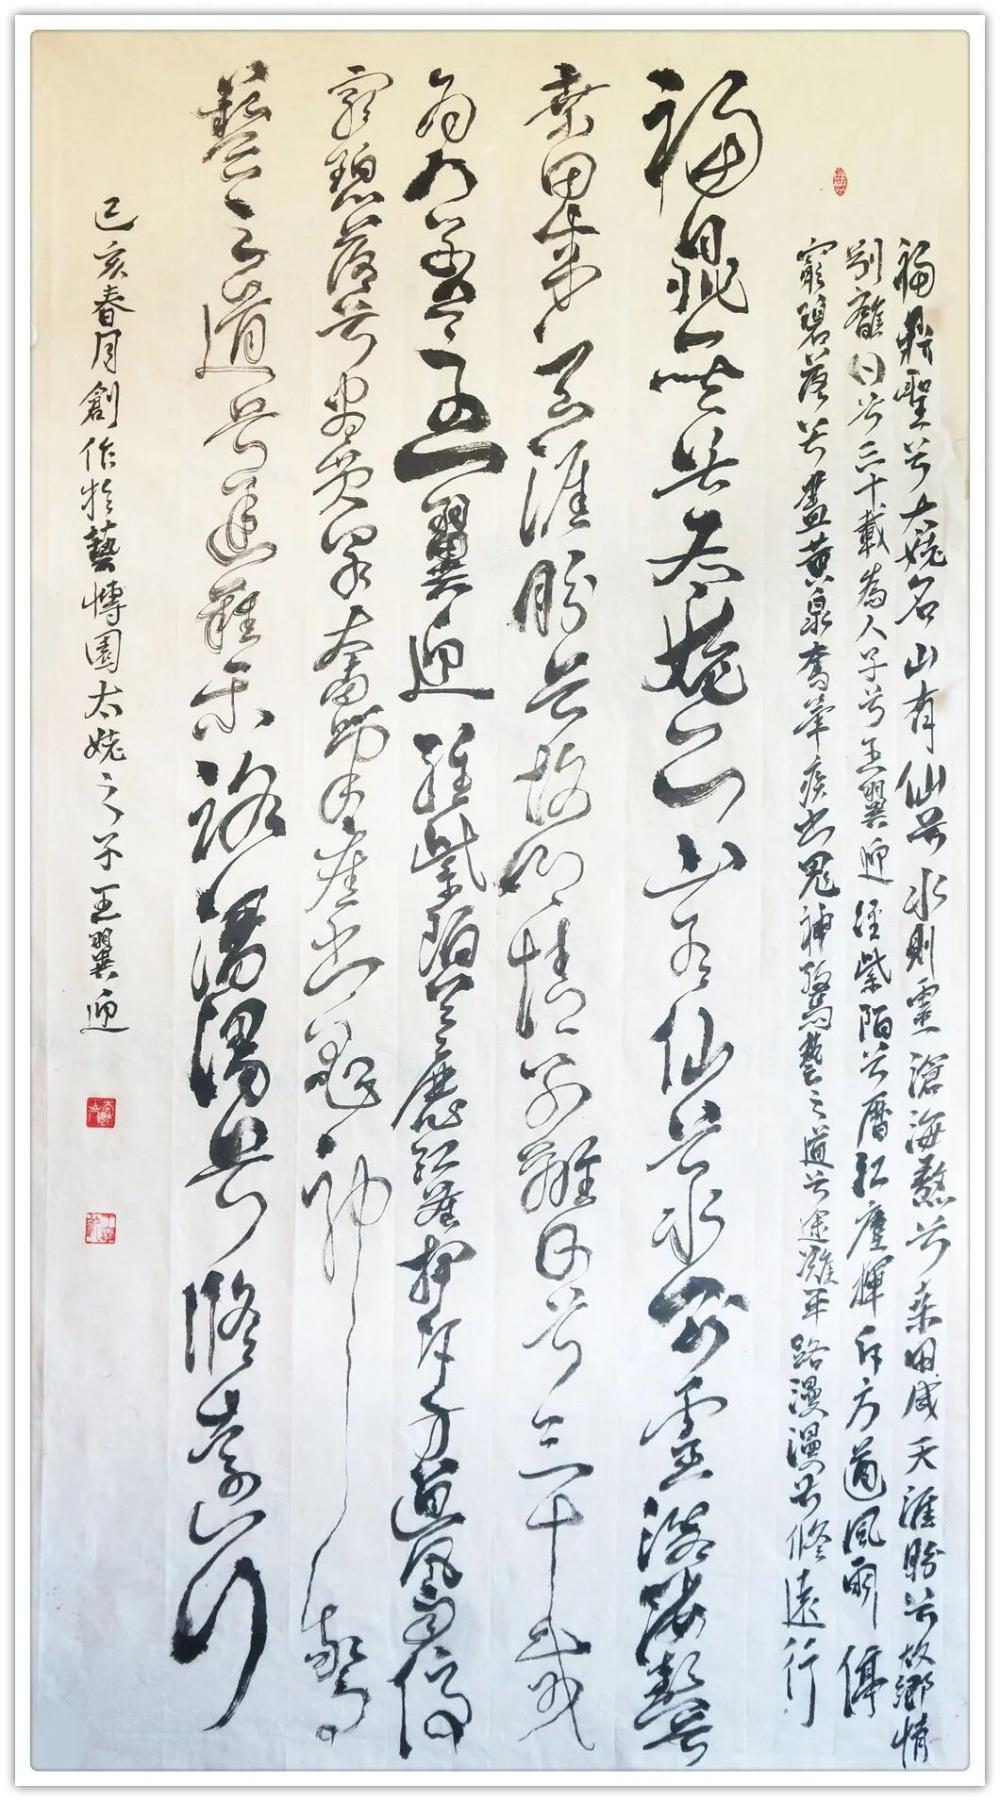 福鼎聖兮太姥名山有仙兮水則靈滄海鰲兮桑田成天涯盼兮故鄉情
別離日兮三十載為人子兮王翼迎徑紫陌兮曆紅塵揮斥方遒風雨停
窮碧落兮盡黃泉奮筆疾書鬼神驚藝之道兮途難平路漫漫兮修遠行
福鼎聖兮太姥名山有仙兮水則靈滄海鰲兮
桑田成天涯盼兮故鄉情別離日兮三十載
為人子兮王翼迎徑紫陌兮曆紅塵揮斥方遒風雨停
窮碧落兮盡黃泉奮筆疾書鬼神驚
藝之道兮途難平路漫漫兮修遠行
己亥春月創作於藝博園太姥之子王翼迎